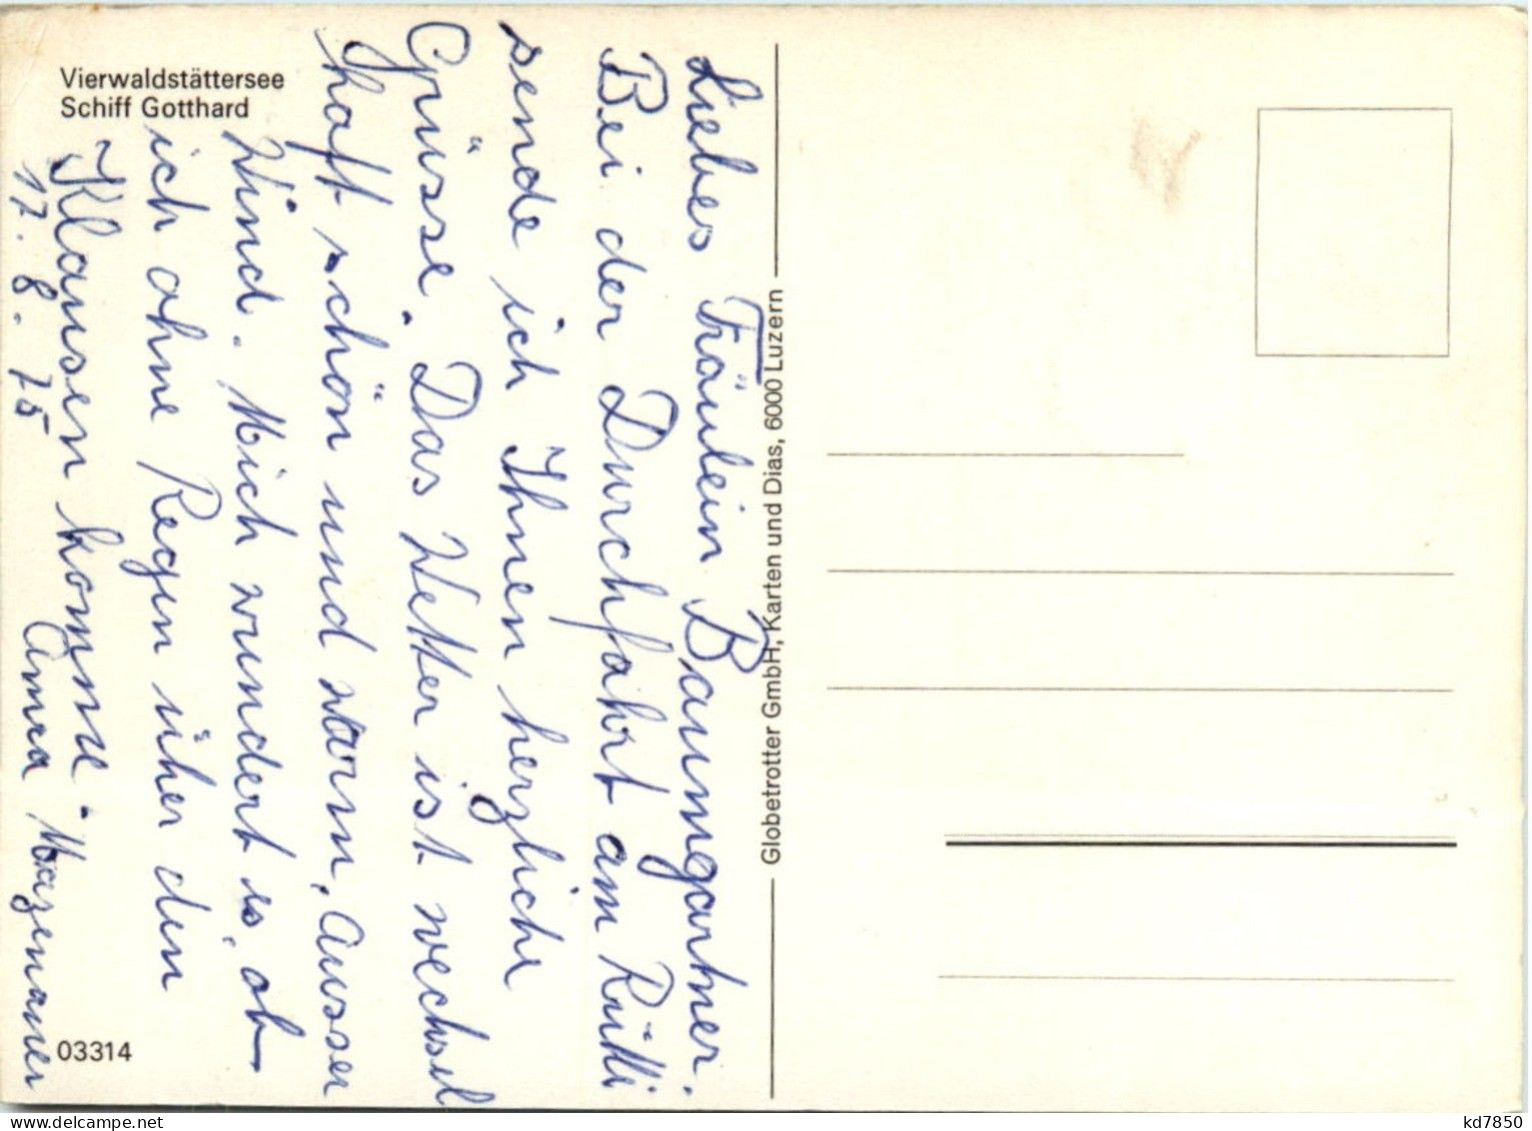 Vierwaldstättersee
Schiff Gotthard
Liebes Fräulein Baumgartner.
Bei der Durchfahrt am Rütli
sende ich Ihnen herzliche
Grüsse. Das Wetter ist wechsel
haft schön und warm, ausser
Wind. Mich wundert es, ob
ich ohne Regen über den
Klausen komme.
17. 8. 75
Globetrotter GmbH, Karten und Dias, 6000 Luzern
03314
www.delcampe.net
kd7850